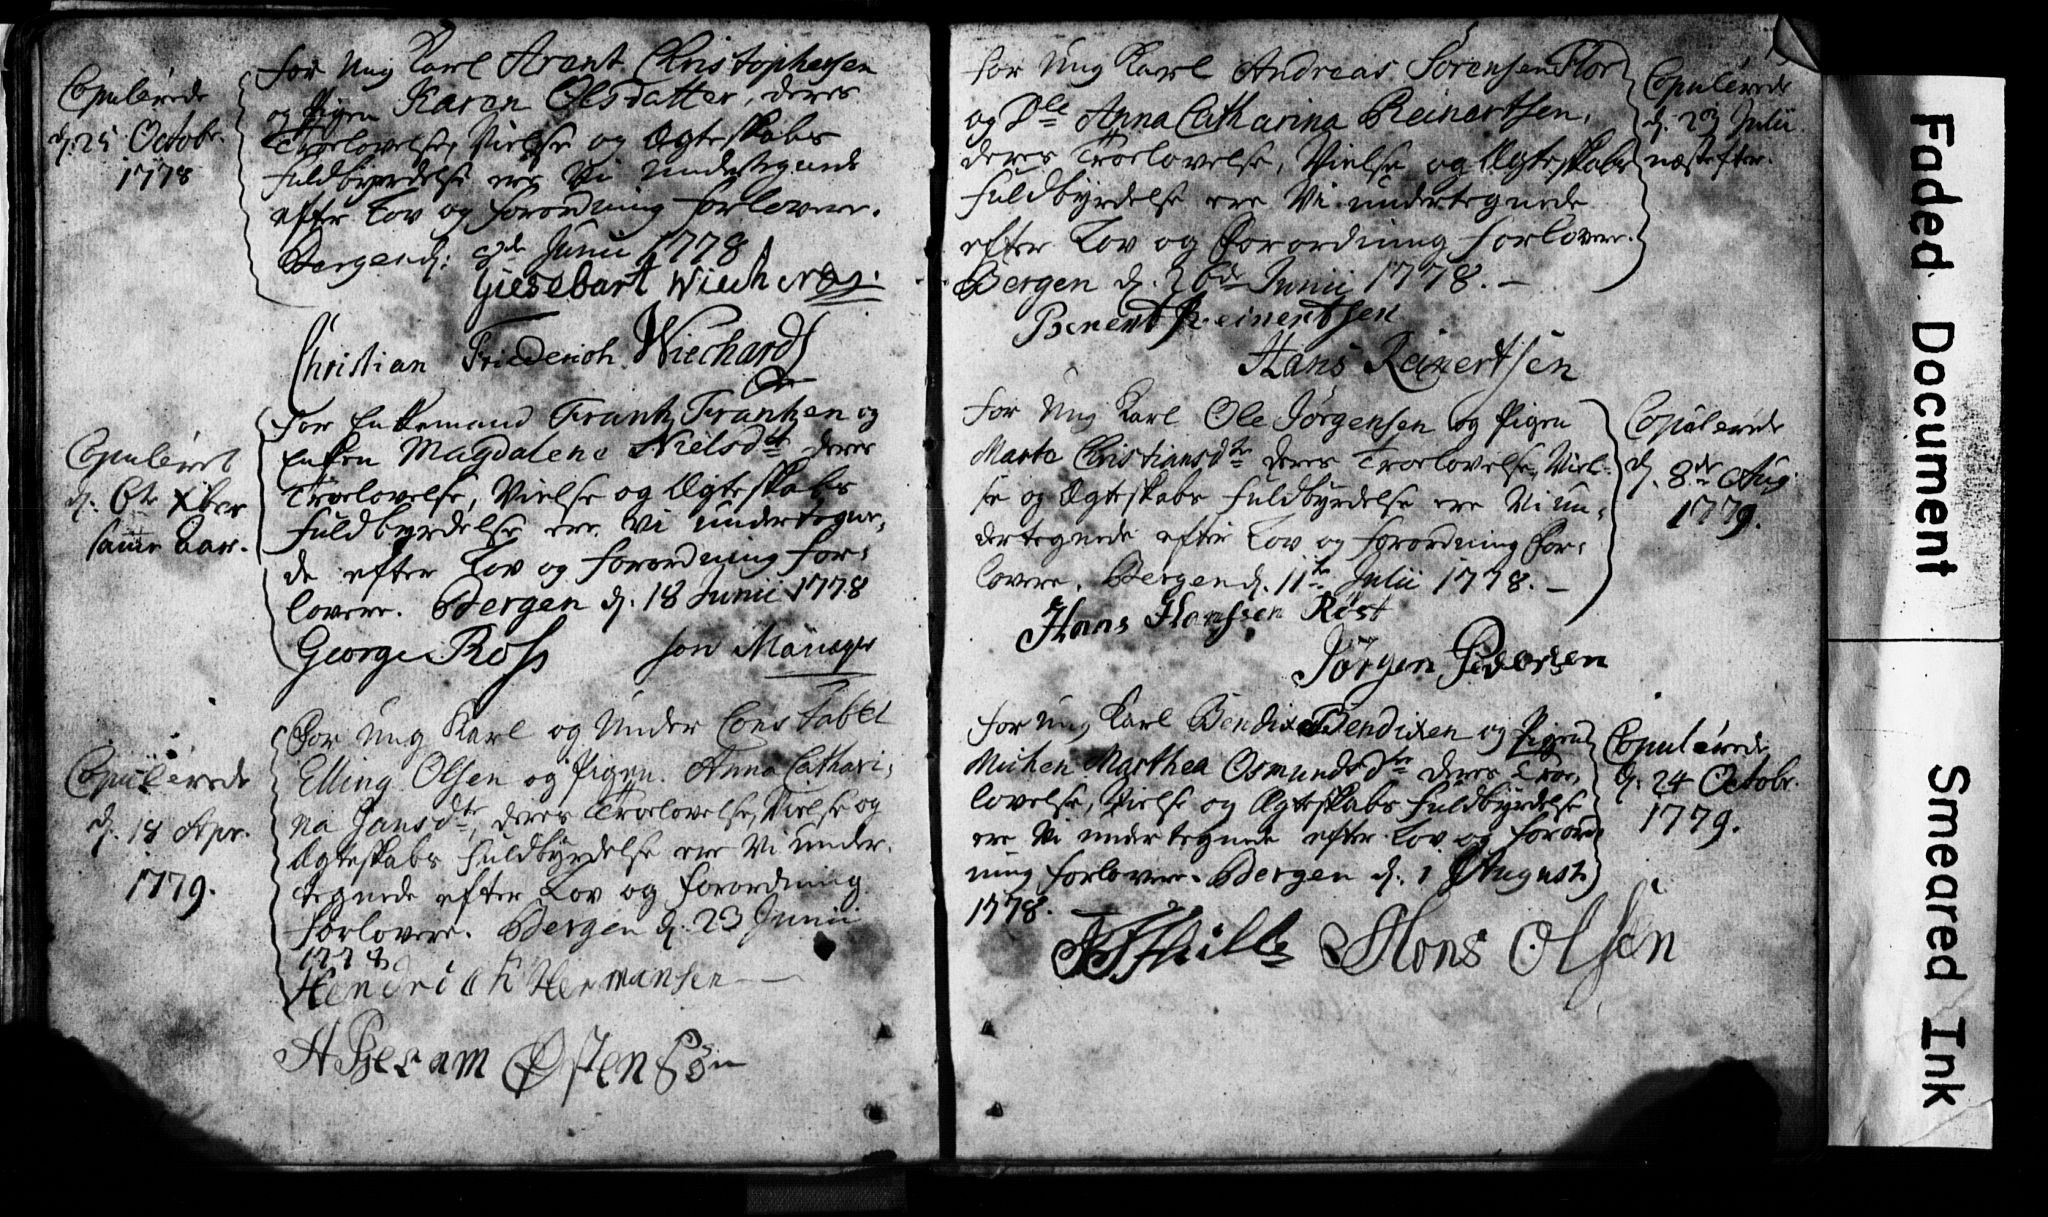 Copulerede
d. 25 Octobr.
1778
For Ung Karl Arent Christophersen
og Pigen Karen Olsdatter, deres
Troelovelse, Vielse og Ægteskabs
Fuldbyrdelse ere Vi Undertegnede
efter Lov og Forordning Forlovere.
Bergen d: Junii 1778
Giesebart Wiecherds.
Christian Friederich Wiechards
Copuleret
d. 6te Xber
samme Aar.
For Enkemand Frantz Frantzen og
Enken Magdalene Nielsdtr deres
Troelovelse, Vielse og Ægteskabs
Fuldbyrdelse ere Vi undertegne-
de efter Lov og Forordning For-
lovere. Bergen d. 18 Junii 1778
George Ross
Copulerede
d. 18 Sepr.
1779.
For Ung Karl og Under Constabel
Elling Olsen og Pigen Anna Cathari-
na Jansdtr, deres Troelovelse, Vielse og
Ægteskabs Fuldbyrdelse ere Vi under-
tegnede efter Lov og Forordning
Forlovere. Bergen d. 23 Junii
1778
Hendrich Hermansen
Østensøn
For Ung Karl Andreas Sörensen Flor
og Dle Anna Catharina Reinertsen,
deres Troelovelse, Vielse og Ægteskabs
Fuldbyrdelse ere Vi undertegnede
efter Lov og Forordning Forlovere.
Bergen d. 26de Junii 1778.
Reinertsen
Hans Reinertsen
Copulerede
d. 23 Julii
næstefter.
For Ung Karl Ole Jørgensen og Pigen
Marte Christiansdtr deres Troelovelse, Viel-
se og Ægteskabs Fuldbyrdelse ere Vi un-
dertegnede efter Lov og Forordning For-
lovere. Bergen d. 11te Julii 1778.
Hans Hanssen Röst
Jörgen Pedersen
Copulerede
d. 8de Aug.
1779.
For Ung Karl Bendix Bendixen og Pigen
Michen Marthea Osmundsdtr deres Troe-
lovelse, Vielse og Ægteskabs Fuldbyrdelse
ere Vi undertegnede efter Lov og Forord-
ning Forlovere. Bergen d. 1 August
1778.
Hans Olsen
Copulerede
d. 24 Octobr.
1779.
Faded Document
Smeared Ink